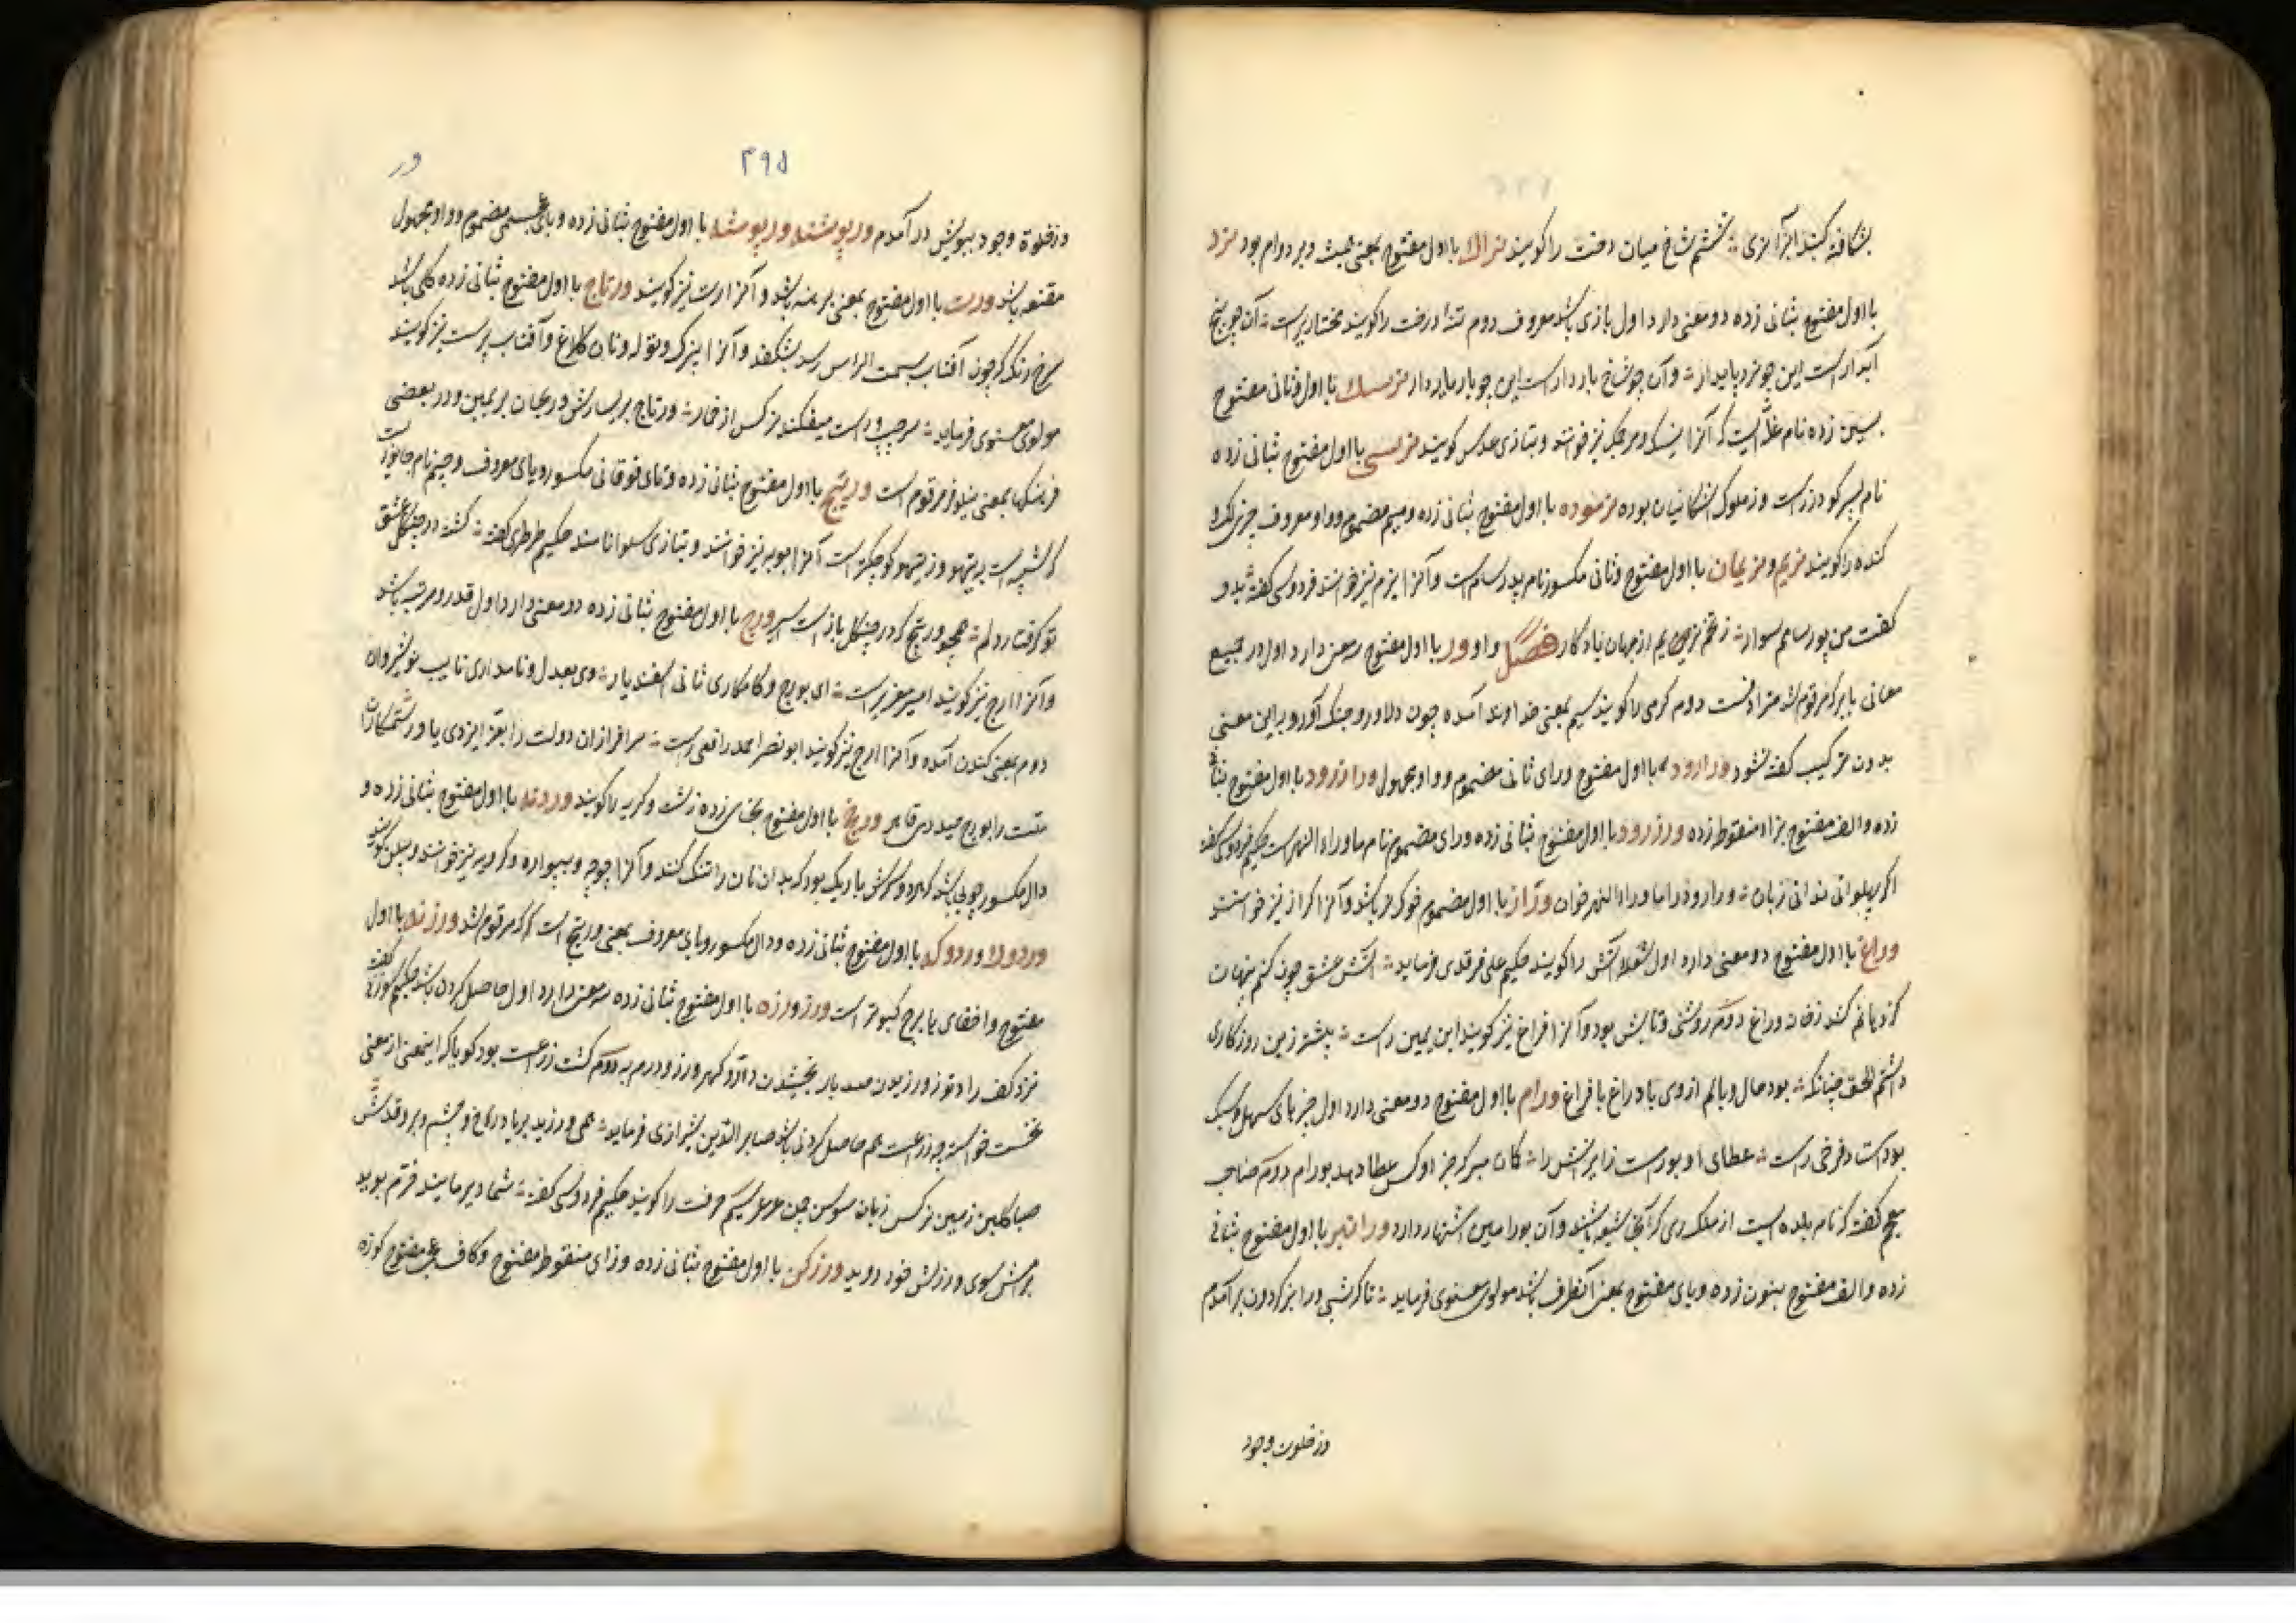 بشکافند کبند ابرآنری ؞ ششم شاخ میان درخت را کویند نراک با اول مفتوح بمعنی همیشه و بر دوام بود نرد
با اول مفتوح بثانی زده دو معنی دارد اول بازی باشد معروف دوم تنه درخت را کویند مختار یراست ؞ آن چو بیخ
آبدار است این چو نرد پایدار ؞ و آن چو شاخ باردار است این چو بار باردار نرسک با اول و ثانی مفتوح
بسین زده نام غله ایست که آنرا نسک و مرجک نیز خوانند و بتازی عدس کویند نرسی با اول مفتوح بثانی زده
نام پسر کودرز است و از ملوک اشکانیان بوده نرموده با اول مفتوح بثانی زده و میم مضموم و واو معروف چیز
کنده را کویند نریم و نریمان با اول مفتوح و ثانی مکسور نام پدر سام است و آنرا نیرم نیز خوانند فردوسی کفته بدو
کفت من پور سامم سوار ؞ ز تخم نریمانم از جهان یادکار فصل واو ور با اول مفتوح سه معنی دارد اول در جمیع
معانی با بر که مرقوم شد مترادفست دوم کرمی را کویند سیم بمعنی خداوند آمده چون دلاور و جنک آور و براین معنی
بدون ترکیب کفته نشود ورارود با اول مفتوح و رای ثانی مضموم و واو مجهول ورازرود با اول مفتوح بثانی
زده و الف مفتوح بزاء منقوط زده ورزرود با اول مفتوح بثانی زده و رای مضموم نام ماوراء النهر است حکیم فردوسی کفته
اکر پهلوانی ندانی زبان ؞ ورارود را ماوراء النهر خوان وراز با اول مضموم خوک نر باشد و آنرا کراز نیز خوانند
وراغ با اول مفتوح دو معنی دارد اول شعله آتش را کویند حکیم علی فرقدی فرماید ؞ آتش عشق چون کنم پنهان
کز دماغم کند زخان وراغ دوم روشنی و تابش بود و آنرا فراغ نیز کویند ابن یمین راست ؞ پیشتر زین روزکاری
داشتم الحق چنانکه ؞ بود حال و بالم از وی با وراغ با فراغ ورام با اول مفتوح دو معنی دارد اول چیزهای سهل و سبک
بود استاد فرخی راست ؞ عطای او بورست زایرانش را ؞ کمان مبر که جز او کس عطا دهد بورام دوم صاحب
معجم کفته که نام بلده ایست از ملک ری که آنجا شیعه باشند و آن بورامین اشتهار دارد ورانبر با اول مفتوح بثانی
زده و الف مفتوح بنون زده و بای مفتوح بمعنی آنطرف باشد مولوی معنوی فرماید ؞ تا کرشی ورانبر کردون برآمدم
در خلوت وجود
۲۹۵
ور
در خلوة وجود ببویش درآمدم ورپوشنه ورپوشه با اول مفتوح بثانی زده و بای عجمی مضموم و واو مجهول
مقنعه باشد ورت با اول مفتوح بمعنی برهنه باشد و آنرا رت نیز کویند ورتاج با اول مفتوح بثانی زده کلی باشد
سرخ رنک که چون آفتاب بسمت الراس رسد بشکفد و آنرا پنیرک و توله و نان کلاغ و آفتاب پرست نیز کویند
مولوی معنوی فرماید ؞ مر چپ و راست میفکند نرکس از خمار ؞ ورتاج بر یسارش و ریحان بر یمین و در بعضی
فرهنکها بمعنی نیلوفر مرقوم است ورتیج با اول مفتوح بثانی زده و تای فوقانی مکسور و یای معروف و جیم نام جانوریست
که شبیه است به تیهو و از تیهو کوچکتر است آنرا بودنه نیز خوانند و بتازی سلوا نامند حکیم طرطری کفته ؞ کشته در چنکال عشق
تو کرفتار دلم ؞ همچو ورتیج که در چنکل باز است اسیر ورج با اول مفتوح بثانی زده دو معنی دارد اول قدر و مرتبه باشد
و آنرا ارج نیز کویند امیر معزی راست ؞ ای بورج و کامکاری ثانی اسفندیار ؞ وی بعدل و نامداری نایب نوشیروان
دوم بمعنی کندن آمده و آنرا ارج نیز کویند ابو نصر احمد رافعی راست ؞ سرافرازان دولت را بعز ایزدی یاور ستمکاران
ملت را بورج حیدری قاهر ورخ با اول مفتوح بخای زده زشت و کریه را کویند وردنه با اول مفتوح بثانی زده و
دال مکسور چوبی باشد که هر دو سرش باریک بود که بدان نان را تنک کنند و آنرا چوچه و بیواره و کردیه نیز خوانند و بیلن کویند
وردولا وردوک با اول مفتوح بثانی زده و دال مکسور و یای معروف بمعنی ورتیج است که مرقوم شد ورزنه با اول
مفتوح و اخفای ها برج کبوتر است ورز ورزه با اول مفتوح بثانی زده سه معنی دارد اول حاصل کردن باشد حکیم سوزنی کفته
نزد کف راد تو ز ورزیدن صد بار بخشیدن دادو کهر ورز و درم به دوم کشت زراعت بود کویا که اینمعنی از معنی
نخست خواسته چه زراعت هم حاصل کردنی باشد صابر الدین شیرازی فرماید ؞ همی ورزید برباد رواغ و چشم و بر و قدش
صبا کلبن زمین نرکس زبان سوسن چمن عرعر سیم حرفت را کویند حکیم فردوسی کفته ؞ شما دیر مانید خرم بوید
برامش سوی ورزش خود دوید ورزکن با اول مفتوح بثانی زده و زای منقوط مفتوح و کاف عجمی مفتوح کوزه